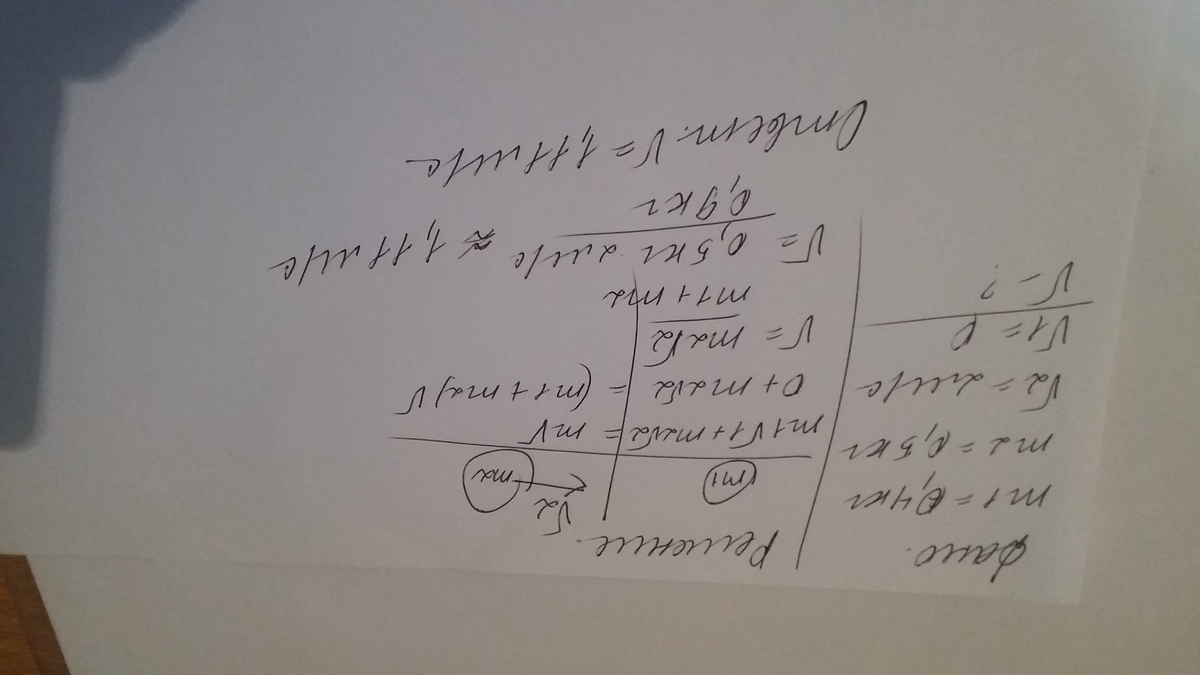 Дано.
m1 = 0,4кг
m2 = 0,5кг
V2 = 2м/с
V1 = 0
V - ?
Решение.
m1
V2
m2
m1V1 + m2V2 = mV
0 + m2V2 = (m1 + m2)V
V = m2V2
m1 + m2
V = 0,5кг 2м/с ≈ 1,11м/с
0,9кг
Ответ: V = 1,11м/с